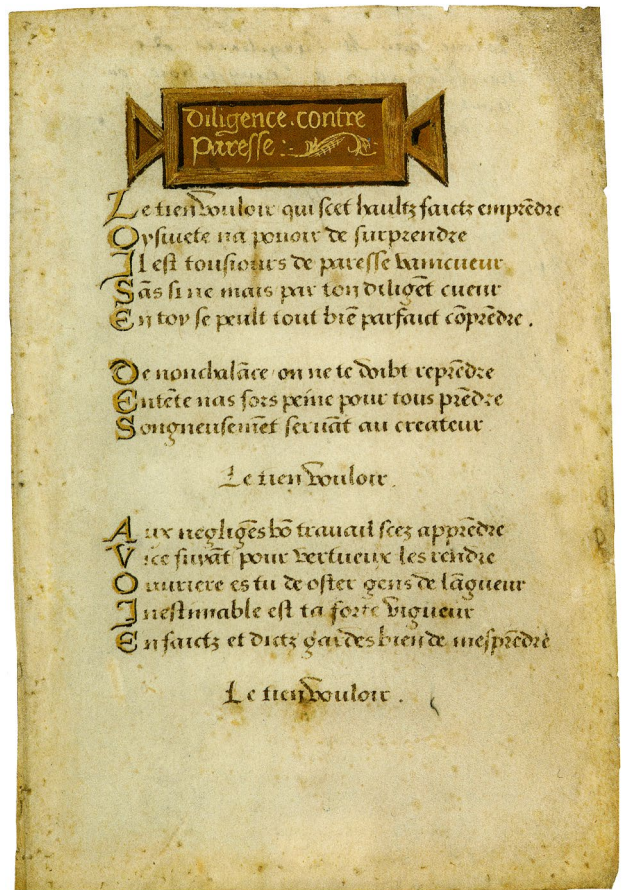 Diligence.contre
Paresse:
Le tien vouloir qui scet haultz faictz emprẽdre
Oysiuete na pouoir de surprendre
Il est tousiours de paresse vaincueur
Sãs si ne mais par ton diligẽt cueur
En toy se peult tout biẽ parfaict cõprẽdre.
De nonchalãce on ne te doibt reprẽdre
Entẽte nas fors peine pour tous prẽdre
Songneusemẽt seruãt au createur
Le tien vouloir.
Aux negligẽs bõ trauail scez apprẽdre
Vice fuyãt pour vertueux les rendre
Ouuriere es tu de oster gens de lãgueur
Inestimable est ta forte vigueur
En faictz et dictz gardes bien de mesprẽdre
Le tien vouloir.